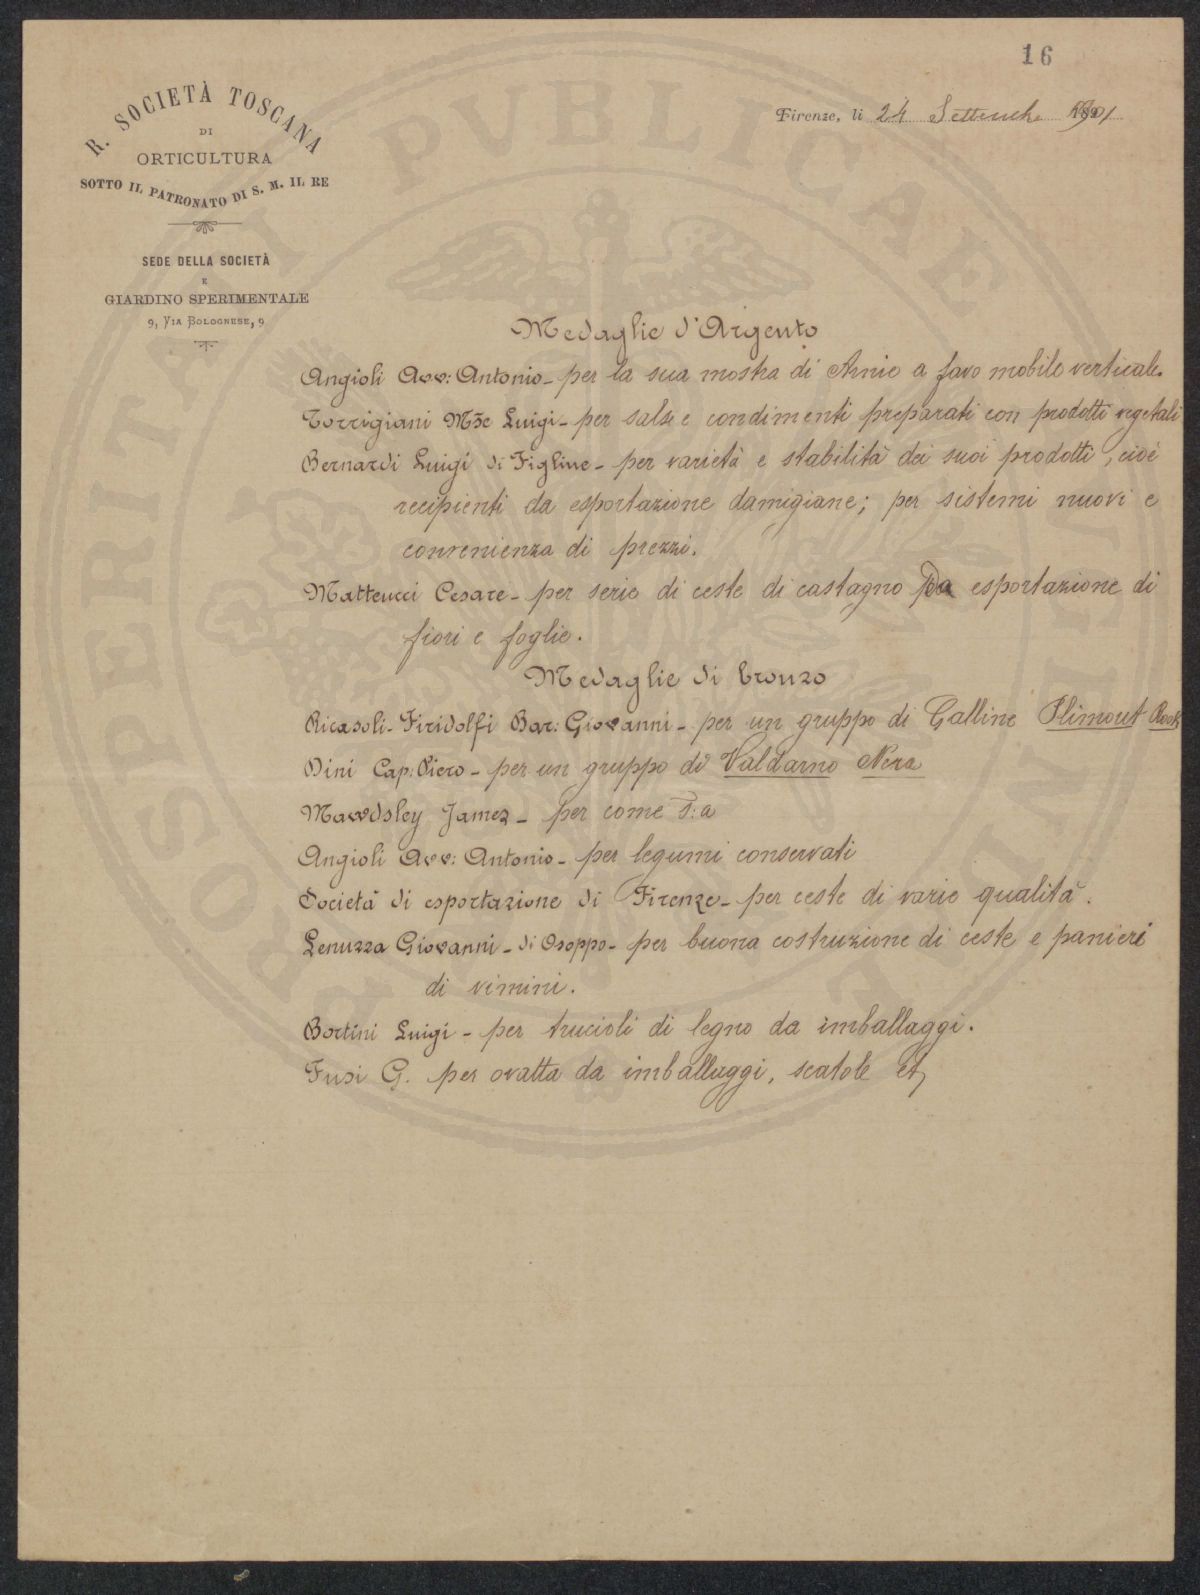 16
R. SOCIETÀ TOSCANA
DI
ORTICULTURA
SOTTO IL PATRONATO DI S. M. IL RE
SEDE DELLA SOCIETÀ
E
GIARDINO SPERIMENTALE
9, VIA BOLOGNESE, 9
Firenze, li 24 Settembre 1901
Medaglie d'Argento
Angioli Avv: Antonio - per la sua mostra di Arnie a favo mobile verticale.
Torrigiani Mse Luigi - per salse e condimenti preparati con prodotti vegetali
Bernardi Luigi di Figline - per varietà e stabilità dei suoi prodotti, cioè
recipienti da esportazione damigiane; per sistemi nuovi e
convenienza di prezzi.
Matteucci Cesare - per serie di ceste di castagno da esportazione di
fiori e foglie.
Medaglie di bronzo
Ricasoli-Firidolfi Bar: Giovanni - per un gruppo di Galline Plimout Rock
Dini Cap: Piero - per un gruppo di Valdarno Nera
Mawdsley James - per come s:a
Angioli Avv: Antonio - per legumi conservati
Società di esportazione di Firenze - per ceste di varie qualità.
Lenuzza Giovanni - di Osoppo - per buona costruzione di ceste e panieri
di vimini.
Bortini Luigi - per trucioli di legno da imballaggi.
Fusi G. per ovatta da imballaggi, scatole et
PROSPERITATI PUBLICAE